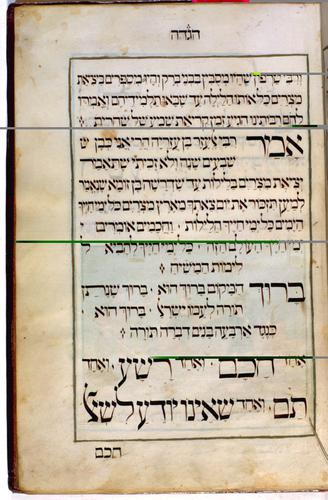 הגדה
ורבי טרפון שהיו מסבין בבני ברק והיו מספרים ביציאת
מצרים כל אותו הלילה עד שבאו תלמידיהם ואמרו
להם רבותינו הגיע זמן קריאת שמע של שחרית
אמר רבי אלעזר בן עזריה הרי אני כבן
שבעים שנה ולא זכיתי שתאמר
יציאת מצרים בלילות עד שדרשה בן זומא שנאמר
למען תזכור את יום צאתך מארץ מצרים כל ימי חייך
ימי חייך הימים כל ימי חייך הלילות וחכמים אומרים
ימי חייך העולם הזה כל ימי חייך להביא ל
לימות המשיח
ברוך המקום ברוך הוא ברוך שנתן
תורה לעמו ישראל ברוך הוא
כנגד ארבעה בנים דברה תורה
אחד חכם ואחד רשע ואחד
תם ואחד שאינו יודע לשאל
חכם